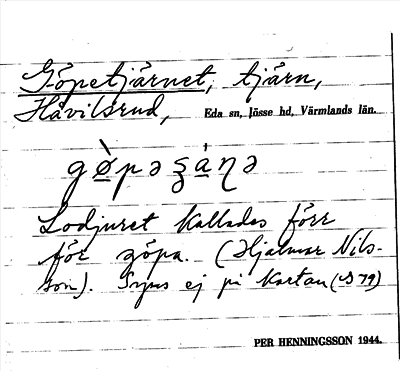 Göpetjärnet, tjärn,
Håvilsrud, Eda sn, Jösse hd, Värmlands län.
gø̀pəʒáɳə
Lodjuret kallades förr
för göpa. (Hjalmar Nils-
son). Synes ej på kartan
PER HENNINGSSON 1944.